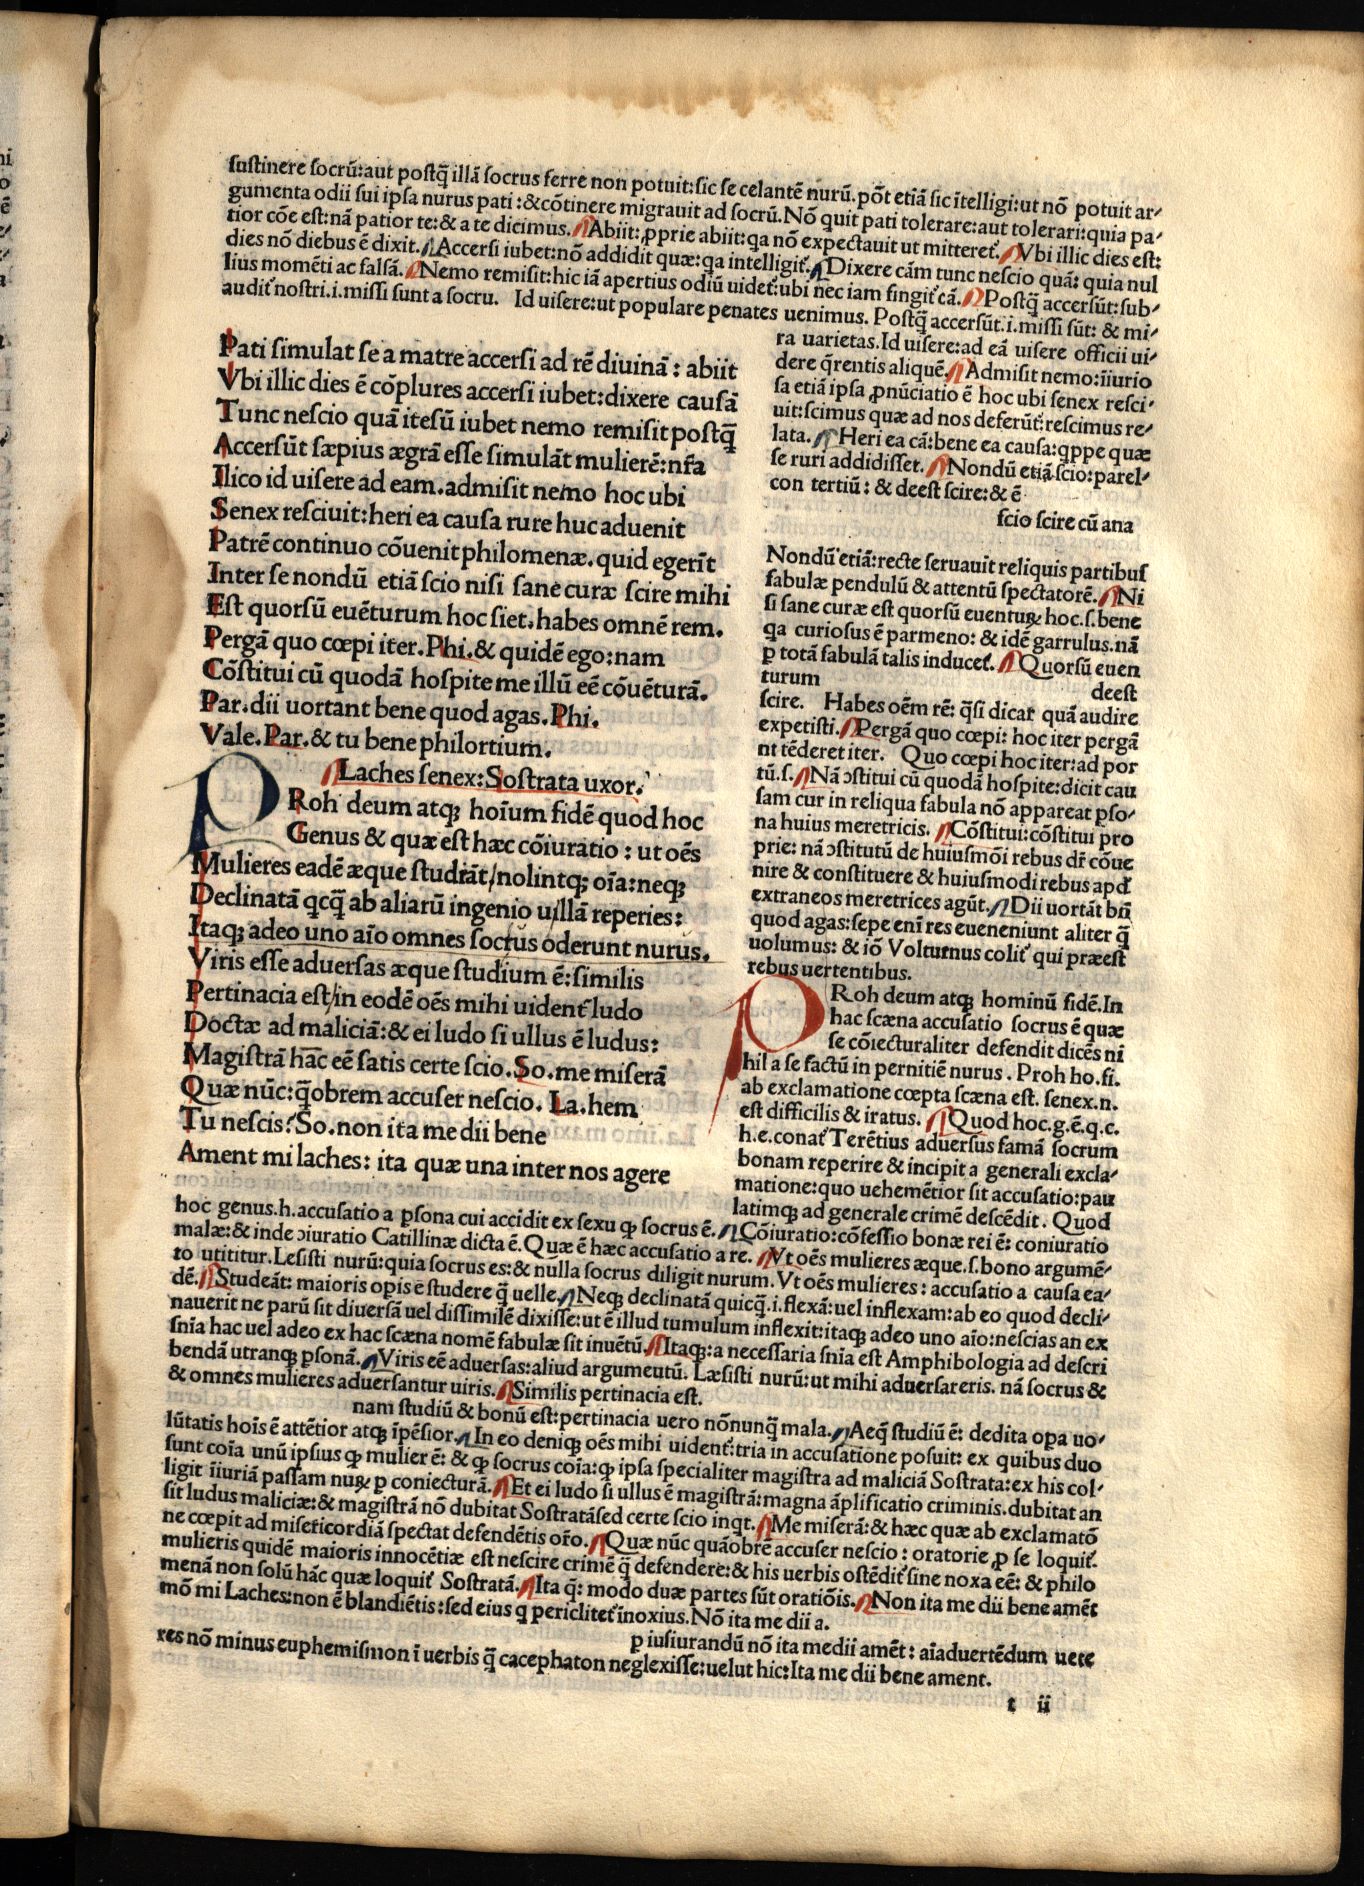 sustinere socrũ:aut postq̃ illã socrus ferre non potuit:sic se celantẽ nurũ.põt etiã sic ĩtelligi:ut nõ potuit ar-
gumenta odii sui ipsa nurus pati:&cõtinere migrauit ad socrũ.Nõ quit pati tolerare:aut tolerari:quia pa-
tior cõe est:nã patior te:& a te dicimus. Abiit:ꝓprie abiit:qa nõ expectauit ut mitteret᷑. Vbi illic dies est:
dies nõ diebus ẽ dixit. Accersi iubet:nõ addidit quæ:qa intelligit᷑. Dixere cãm tunc nescio quã: quia nul
lius momẽti ac falsã. Nemo remisit:hic iã apertius odiũ uidet᷑:ubi nec iam fingit᷑ cã. Postq̃ accersũt:sub-
audit᷑ nostri.i.missi sunt a socru. Id uisere:ut populare penates uenimus. Postq̃ accersũt.i.missi sũt: & mi-
Pati simulat se a matre accersi ad rẽ diuinã: abiit
Vbi illic dies ẽ cõplures accersi iubet:dixere causã
Tunc nescio quã itesũ iubet nemo remisit postq̃
Accersũt sæpius ægrã esse simulãt mulierẽ:nr̃a
Ilico id uisere ad eam.admisit nemo hoc ubi
Senex resciuit:heri ea causa rure huc aduenit
Patrẽ continuo cõuenit philomenæ.quid egerĩt
Inter se nondũ etiã scio nisi sane curæ scire mihi
Est quorsũ euẽturum hoc siet.habes omnẽ rem.
Pergã quo cœpi iter.Phi.& quidẽ ego:nam
Cõstitui cũ quodã hospite me illũ eẽ cõuẽturã.
Par.dii uortant bene quod agas.Phi.
Vale.Par.& tu bene philortium.
Laches senex:Sostrata uxor.
PRoh deum atq; hoĩum fidẽ quod hoc
Genus & quæ est hæc cõiuratio: ut oẽs
Mulieres eadẽ æque studeãt/nolintq; oĩa:neq;
Declinatã qcq̃ ab aliarũ ingenio ullã reperies:
Itaq; adeo uno aĩo omnes socrus oderunt nurus.
Viris esse aduersas æque studium ẽ:similis
Pertinacia est/in eodẽ oẽs mihi uident᷑ ludo
Doctæ ad maliciã:& ei ludo si ullus ẽ ludus:
Magistrã hãc eẽ satis certe scio.So.me miserã
Quæ nũc:q̃obrem accuser nescio. La.hem
Tu nescis?So.non ita me dii bene
Ament mi laches: ita quæ una inter nos agere
ra uarietas.Id uisere:ad eã uisere officii ui-
dere q̃rentis aliquẽ. Admisit nemo:ĩiurio
sa etiã ipsa ꝓnũciatio ẽ hoc ubi senex resci-
uit:scimus quæ ad nos deferũt᷑:rescimus re-
lata. Heri ea cã:bene ea causa:qppe quæ
se ruri addidisset. Nondũ etiã scio:parel-
con tertiũ: & deest scire:& ẽ
scio scire cũ ana
Nondũ etiã:recte seruauit reliquis partibus
fabulæ pendulũ & attentũ spectatorẽ. Ni
si sane curæ est quorsũ euenturꝝ hoc.s.bene
qa curiosus ẽ parmeno: & idẽ garrulus.nã
ꝑ totã fabulã talis inducet᷑. Quorsũ euen
turum deest
scire. Habes oẽm rẽ: q̃si dicat quã audire
expetisti. Pergã quo cœpi: hoc iter pergã
nt tẽderet iter. Quo cœpi hoc iter:ad por
tũ.s. Nã ↄstitui cũ quodã hospite:dicit cau
sam cur in reliqua fabula nõ appareat ꝑso-
na huius meretricis. Cõstitui:cõstitui pro
prie: nã ↄstitutũ de huiusmõi rebus dr̃ cõue
nire & constituere & huiusmodi rebus apđ
extraneos meretrices agũt. Dii uortãt bñ
quod agas:sepe enĩ res eueneniunt aliter q̃
uolumus: & iõ Volturnus colit᷑ qui præest
rebus uertentibus.
PRoh deum atq; hominũ fidẽ.In
hac scæna accusatio socrus ẽ quæ
se cõiecturaliter defendit dicẽs ni
hil a se factũ in pernitiẽ nurus. Proh ho.fi.
ab exclamatione cœpta scæna est. senex.n.
est difficilis & iratus. Quod hoc.g.ẽ.q.c.
h.e.conat᷑ Terẽtius aduersus famã socrum
bonam reperire & incipit a generali excla-
matione:quo uehemẽtior sit accusatio:pau
latimq; ad generale crimẽ descẽdit. Quod
hoc genus.h.accusatio a ꝑsona cui accidit ex sexu ꝙ socrus ẽ. Cõiuratio:cõfessio bonæ rei ẽ: coniuratio
malæ:& inde ↄiuratio Catillinæ dicta ẽ.Quæ ẽ hæc accusatio a re. Vt oẽs mulieres æque.s.bono argumẽ-
to utititur.Lesisti nurũ:quia socrus es:& nulla socrus diligit nurum.Vt oẽs mulieres: accusatio a causa ea-
dẽ. Studeãt: maioris opis ẽ studere q̃ uelle. Neq; declinatã quicq̃.i.flexã:uel inflexam:ab eo quod decli-
nauerit ne parũ sit diuersã uel dissimilẽ dixisse:ut ẽ illud tumulum inflexit:itaq; adeo uno aĩo:nescias an ex
snĩa hac uel adeo ex hac scæna nomẽ fabulæ sit inuẽtũ. Itaq;:a necessaria snĩa est Amphibologia ad descri
bendã utranq; ꝑsonã. Viris eẽ aduersas:aliud argumeutũ. Læsisti nurũ:ut mihi aduersareris. nã socrus &
& omnes mulieres aduersantur uiris. Similis pertinacia est.
nam studiũ & bonũ est:pertinacia uero nõnunq̃ mala. Aeq̃ studiũ ẽ: dedita oꝑa uo-
lũtatis hoĩs ẽ attẽtior atq; ĩpẽsior. In eo deniq; oẽs mihi uident᷑:tria in accusatione posuit: ex quibus duo
sunt coĩa unũ ipsius ꝙ mulier ẽ: & ꝙ socrus coĩa:ꝙ ipsa specialiter magistra ad maliciã Sostrata:ex his col-
ligit ĩiuriã passam nurꝝ ꝑ coniecturã. Et ei ludo si ullus ẽ magistrã:magna ãplificatio criminis.dubitat an
sit ludus maliciæ:& magistrã nõ dubitat Sostratãsed certe scio inqt. Me miserã:& hæc quæ ab exclamatõ
ne cœpit ad misericordiã spectat defendẽtis or̃o. Quæ nũc quãobrẽ accuser nescio: oratorie ꝓ se loquit᷑.
mulieris quidẽ maioris innocẽtiæ est nescire crimẽ q̃ defendere:& his uerbis ostẽdit᷑ sine noxa eẽ: & philo
menã non solũ hãc quæ loquit᷑ Sostratã. Ita q̃: modo duæ partes sũt oratiõis. Non ita me dii bene amẽt
mõ mi Laches:non ẽ blandiẽtis:sed eius q periclitet᷑ ĩnoxius.Nõ ita me dii a.
ꝑ iusiurandũ nõ ita me dii amẽt: aĩaduertẽdum uete
res nõ minus euphemismon ĩ uerbis q̃ cacephaton neglexisse:uelut hic:Ita me dii bene ament.
t ii